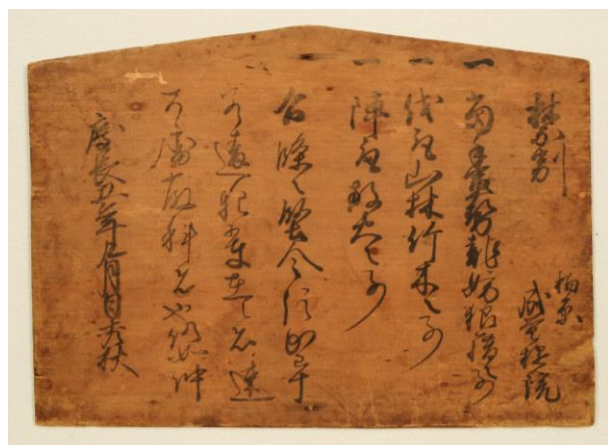 禁制
柏原
成菩提院
一 當手軍勢乱妨狼藉事
一 伐取山林竹木之事
一 陣取放火之事
右條々堅令停止畢
若違犯輩在之者速
可處嚴科者也仍如件
慶長五年九月日秀秋